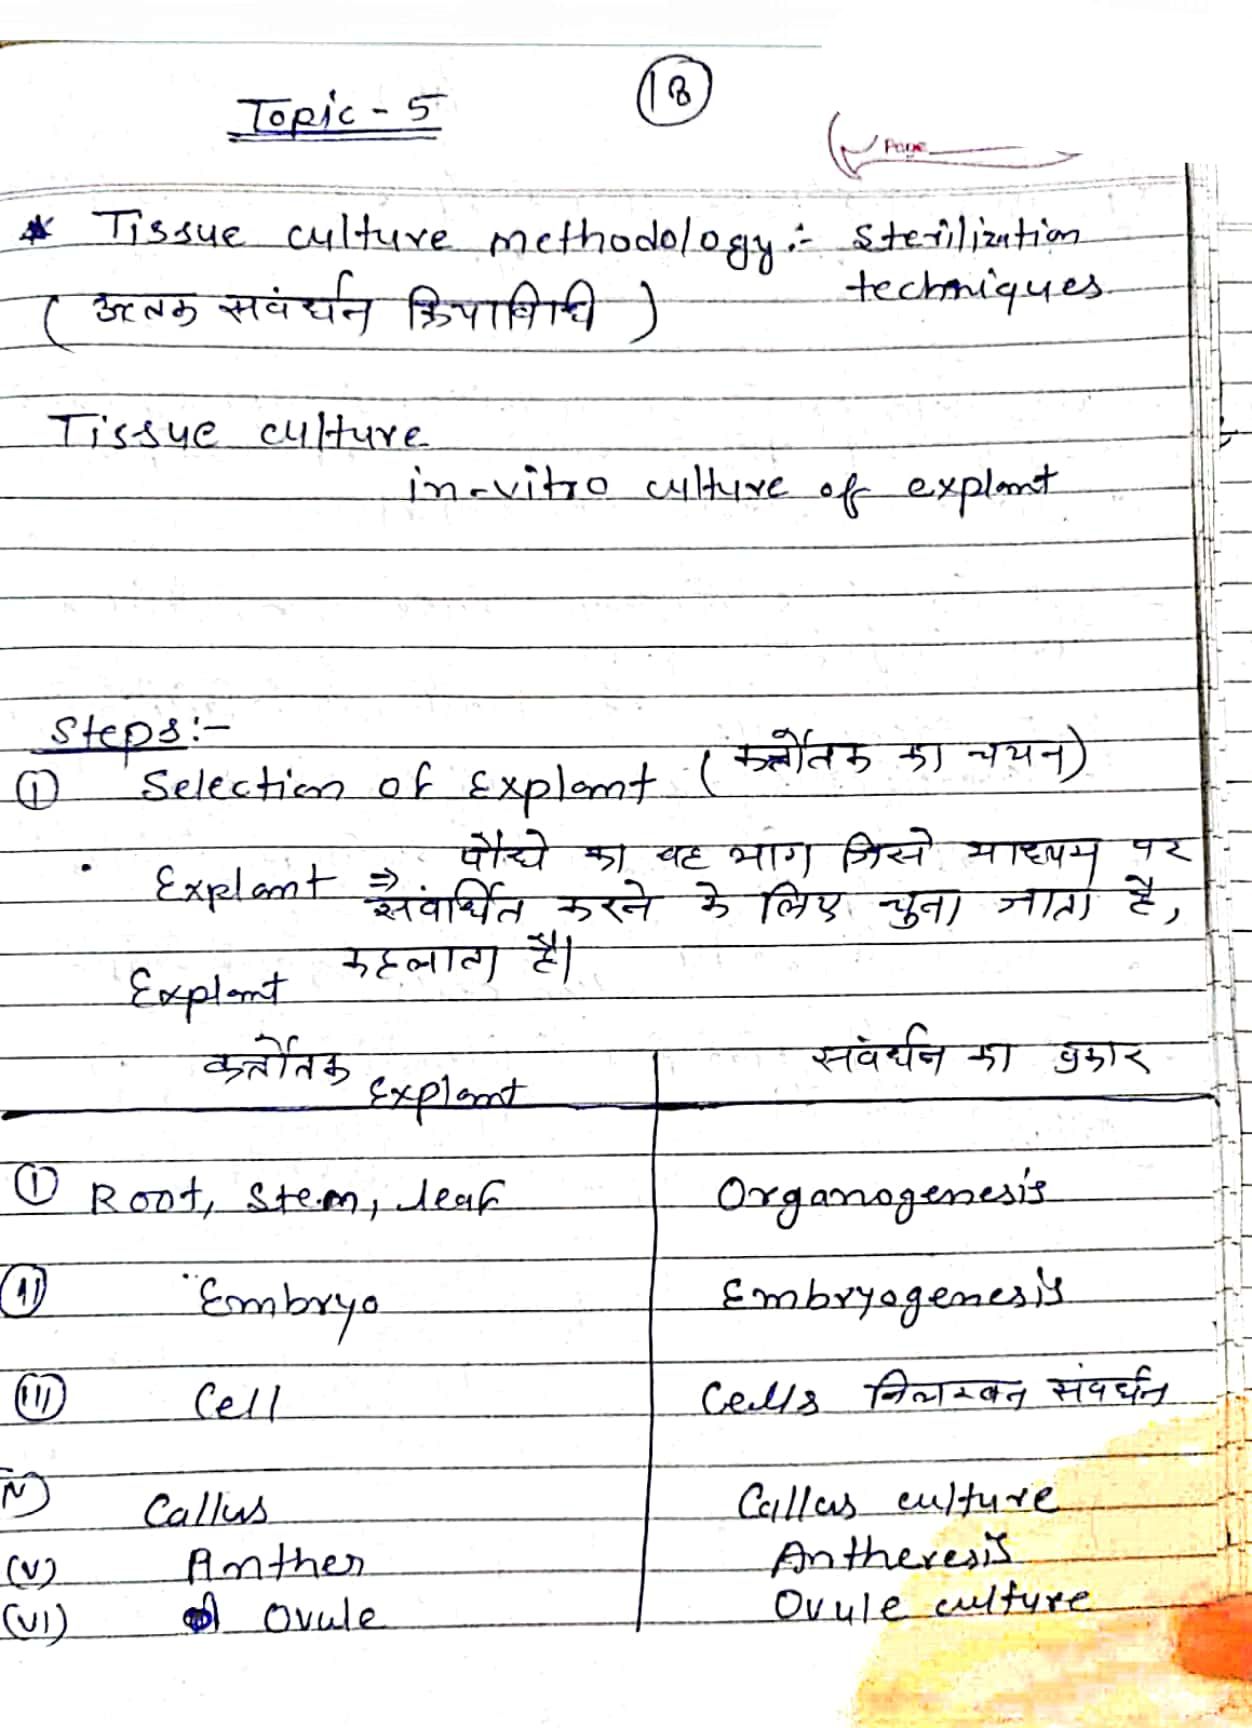 18
Topic - 5
Page
* Tissue culture methodology :- Sterilization
techniques
(ऊतक संवर्धन क्रियाविधि)
Tissue culture
in-vitro culture of explant
Steps:-
① Selection of Explant (कर्त्तोतक का चयन)
• Explant ⇒ पौधे का वह भाग जिसे माध्यम पर
संवर्धित करने के लिए चुना जाता है,
Explant कहलाता है।
कर्त्तोतक Explant | संवर्धन का प्रकार
(I) Root, Stem, leaf | Organogenesis
(II) Embryo | Embryogenesis
(III) Cell | Cells निलम्बन संवर्धन
(IV) Callus | Callus culture
(V) Anther | Antheresis
(VI) Ovule | Ovule culture